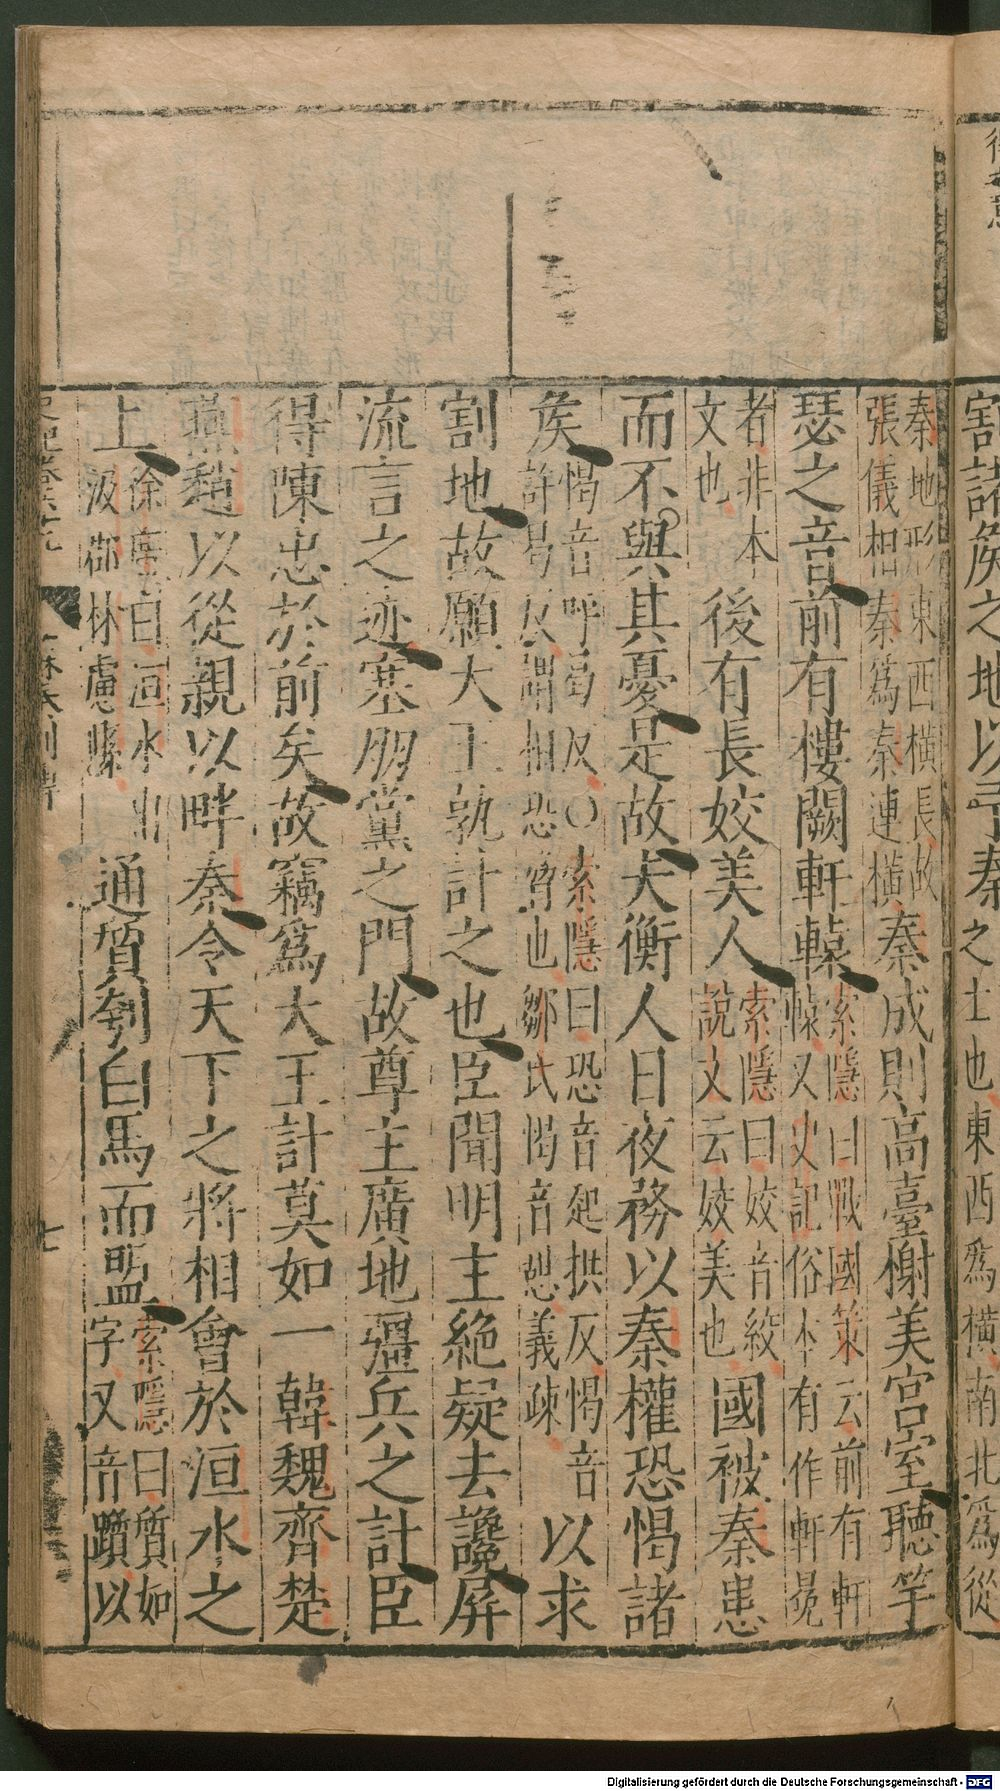 割諸侯之地以予秦之士也東西爲橫南北爲從
秦地形東西橫長故
張儀相秦爲秦連橫秦成則高臺榭美宮室聽竽
瑟之音前有樓闕軒轅索隱曰戰國策云前有軒
轅又史記俗本有作軒冕
者非本
文也後有長姣美人索隱曰姣音絞
說文云姣美也國被秦患
而不與其憂是故夫衡人日夜務以秦權恐愒諸
矦愒音呼曷反○索隱曰恐音起拱反愒音
許曷反謂相恐脅也鄒氏愒音憩義疎以求
割地故願大王孰計之也臣聞明主絶疑去讒屏
流言之迹塞朋黨之門故尊主廣地彊兵之計臣
得陳忠於前矣故竊爲大王計莫如一韓魏齊楚
燕趙以從親以畔秦令天下之將相會於洹水之
上徐廣曰洹水出
汲郡林慮縣通質刳白馬而盟索隱曰質如
字又音躓以
史記卷六十九
蘇秦列傳
七
Digitalisierung gefördert durch die Deutsche Forschungsgemeinschaft - DFG